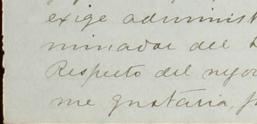 exige administ
minador del
Respecto del
me gustaria,